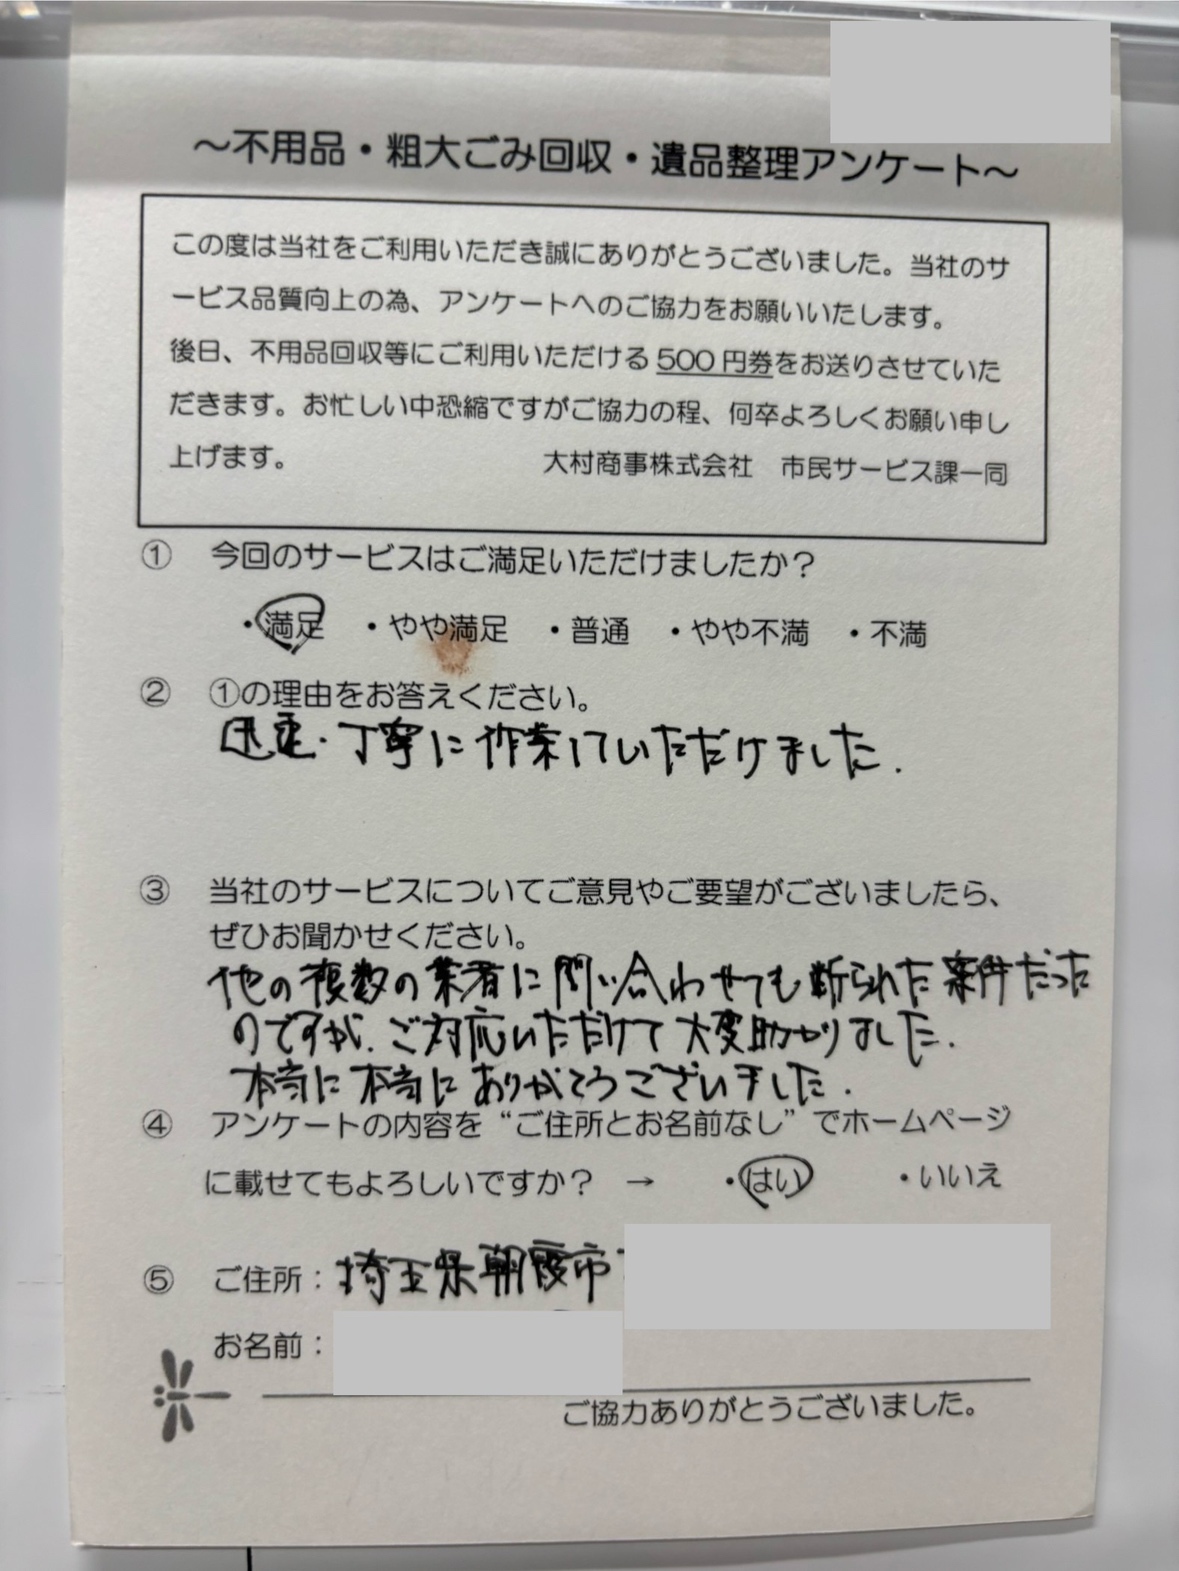 ～不用品・粗大ごみ回収・遺品整理アンケート～
この度は当社をご利用いただき誠にありがとうございました。当社のサ
ービス品質向上の為、アンケートへのご協力をお願いいたします。
後日、不用品回収等にご利用いただける500円券をお送りさせていた
だきます。お忙しい中恐縮ですがご協力の程、何卒よろしくお願い申し
上げます。　大村商事株式会社　市民サービス課一同
① 今回のサービスはご満足いただけましたか？
・満足　・やや満足　・普通　・やや不満　・不満
② ①の理由をお答えください。
迅速・丁寧に作業していただけました.
③ 当社のサービスについてご意見やご要望がございましたら、
ぜひお聞かせください。
他の複数の業者に問い合わせても断られた案件だった
のですが、ご対応いただけて大変助かりました.
本当に本当にありがとうございました.
④ アンケートの内容を“ご住所とお名前なし”でホームページ
に載せてもよろしいですか？　→　・はい　・いいえ
⑤ ご住所：埼玉県朝霞市
お名前：
ご協力ありがとうございました。